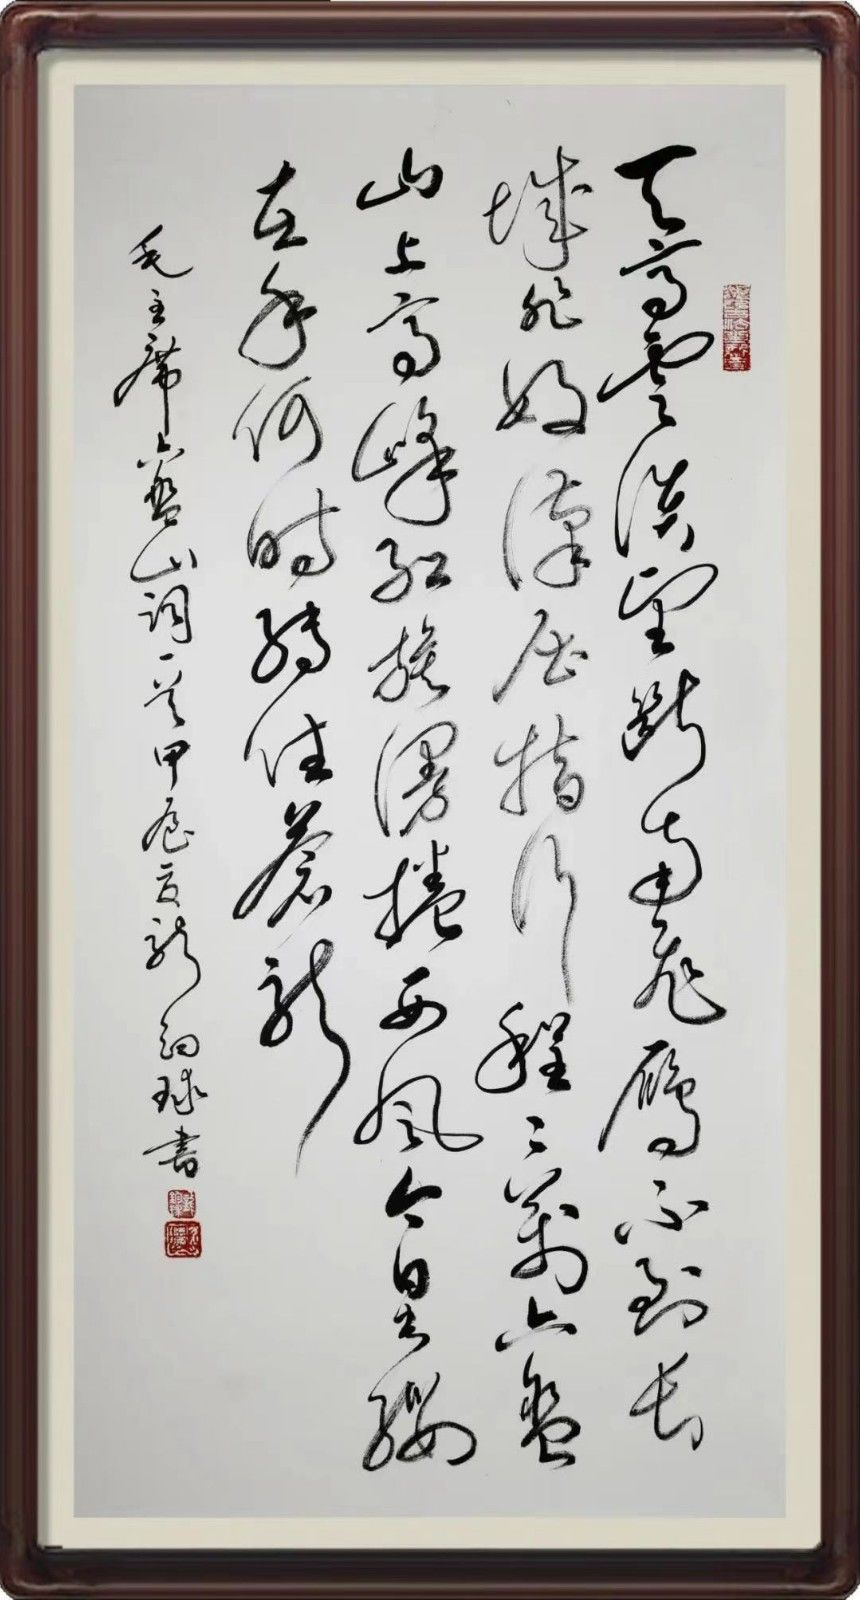 天高雲淡望斷南飛鴈不到長
城非好漢屈指行程二萬六盤
山上高峰紅旗漫捲西風今日長纓
在手何時縛住蒼龍
毛主席六盤山詞一首甲辰夏龍球書